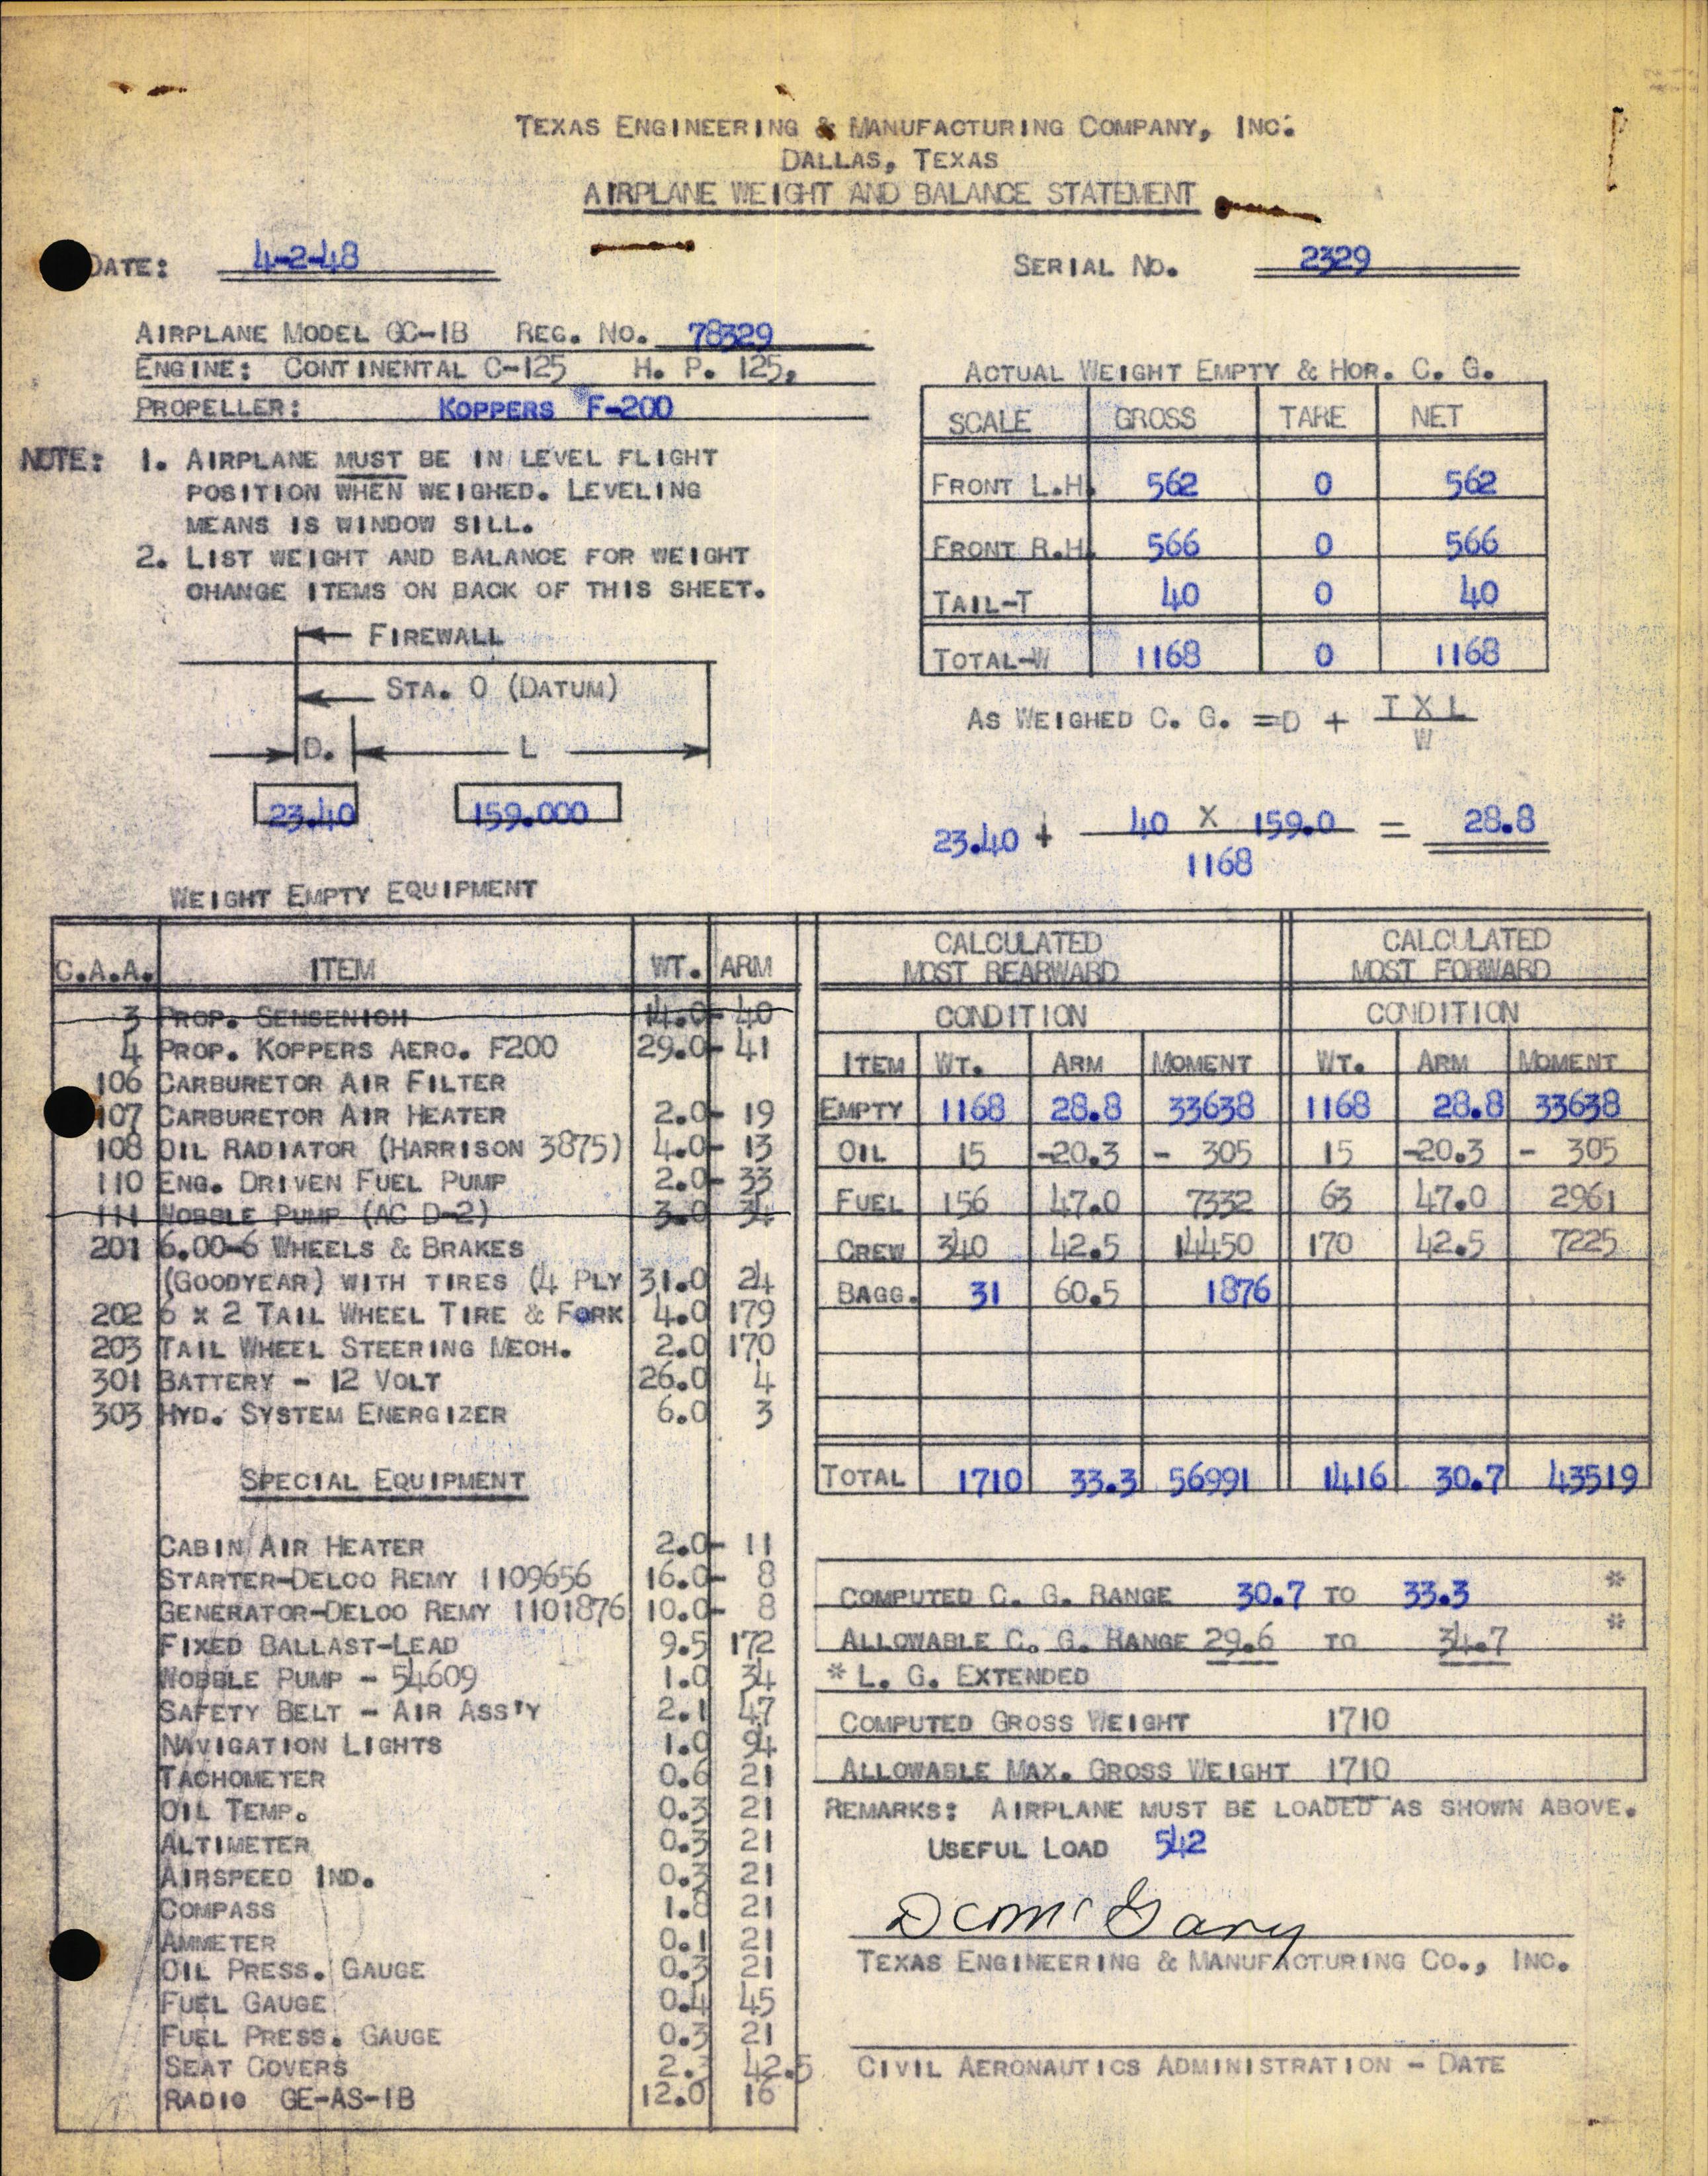 TEXAS ENGINEERING & MANUFACTURING COMPANY, INC.
DALLAS, TEXAS
AIRPLANE WEIGHT AND BALANCE STATEMENT
DATE: 4-2-48 SERIAL NO. 2329
AIRPLANE MODEL GC-1B REG. NO. 78329
ENGINE: CONTINENTAL C-125 H. P. 125,
PROPELLER: KOPPERS F-200
NOTE: 1. AIRPLANE MUST BE IN LEVEL FLIGHT
POSITION WHEN WEIGHED. LEVELING
MEANS IS WINDOW SILL.
2. LIST WEIGHT AND BALANCE FOR WEIGHT
CHANGE ITEMS ON BACK OF THIS SHEET.
FIREWALL
STA. 0 (DATUM)
D. L
23.40 159.000
ACTUAL WEIGHT EMPTY & HOR. C. G.
SCALE GROSS TARE NET
FRONT L.H. 562 0 562
FRONT R.H. 566 0 566
TAIL-T 40 0 40
TOTAL-W 1168 0 1168
AS WEIGHED C. G. =D + T X L
W
23.40 + 40 X 159.0 = 28.8
1168
WEIGHT EMPTY EQUIPMENT
C.A.A. ITEM WT. ARM
3 PROP. SENSENICH 14.0- 40
4 PROP. KOPPERS AERO. F200 29.0- 41
106 CARBURETOR AIR FILTER
107 CARBURETOR AIR HEATER 2.0- 19
108 OIL RADIATOR (HARRISON 3875) 4.0- 13
110 ENG. DRIVEN FUEL PUMP 2.0- 33
111 WOBBLE PUMP (AC D-2) 3.0 34
201 6.00-6 WHEELS & BRAKES
(GOODYEAR) WITH TIRES (4 PLY 31.0 24
202 6 X 2 TAIL WHEEL TIRE & FORK 4.0 179
203 TAIL WHEEL STEERING MECH. 2.0 170
301 BATTERY - 12 VOLT 26.0 4
303 HYD. SYSTEM ENERGIZER 6.0 3
SPECIAL EQUIPMENT
CABIN AIR HEATER 2.0- 11
STARTER-DELCO REMY 1109656 16.0- 8
GENERATOR-DELCO REMY 1101876 10.0- 8
FIXED BALLAST-LEAD 9.5 172
WOBBLE PUMP - 54609 1.0 34
SAFETY BELT - AIR ASS'Y 2.1 47
NAVIGATION LIGHTS 1.0 94
TACHOMETER 0.6 21
OIL TEMP. 0.3 21
ALTIMETER 0.3 21
AIRSPEED IND. 0.3 21
COMPASS 1.8 21
AMMETER 0.1 21
OIL PRESS. GAUGE 0.3 21
FUEL GAUGE 0.4 45
FUEL PRESS. GAUGE 0.3 21
SEAT COVERS 2.3 42.5
RADIO GE-AS-1B 12.0 16
CALCULATED CALCULATED
MOST REARWARD MOST FORWARD
CONDITION CONDITION
ITEM WT. ARM MOMENT WT. ARM MOMENT
EMPTY 1168 28.8 33638 1168 28.8 33638
OIL 15 -20.3 - 305 15 -20.3 - 305
FUEL 156 47.0 7332 63 47.0 2961
CREW 340 42.5 14450 170 42.5 7225
BAGG. 31 60.5 1876
TOTAL 1710 33.3 56991 1416 30.7 43519
COMPUTED C. G. RANGE 30.7 TO 33.3 *
ALLOWABLE C. G. RANGE 29.6 TO 34.7 *
* L. G. EXTENDED
COMPUTED GROSS WEIGHT 1710
ALLOWABLE MAX. GROSS WEIGHT 1710
REMARKS: AIRPLANE MUST BE LOADED AS SHOWN ABOVE.
USEFUL LOAD 542
DC McGary
TEXAS ENGINEERING & MANUFACTURING CO., INC.
CIVIL AERONAUTICS ADMINISTRATION - DATE